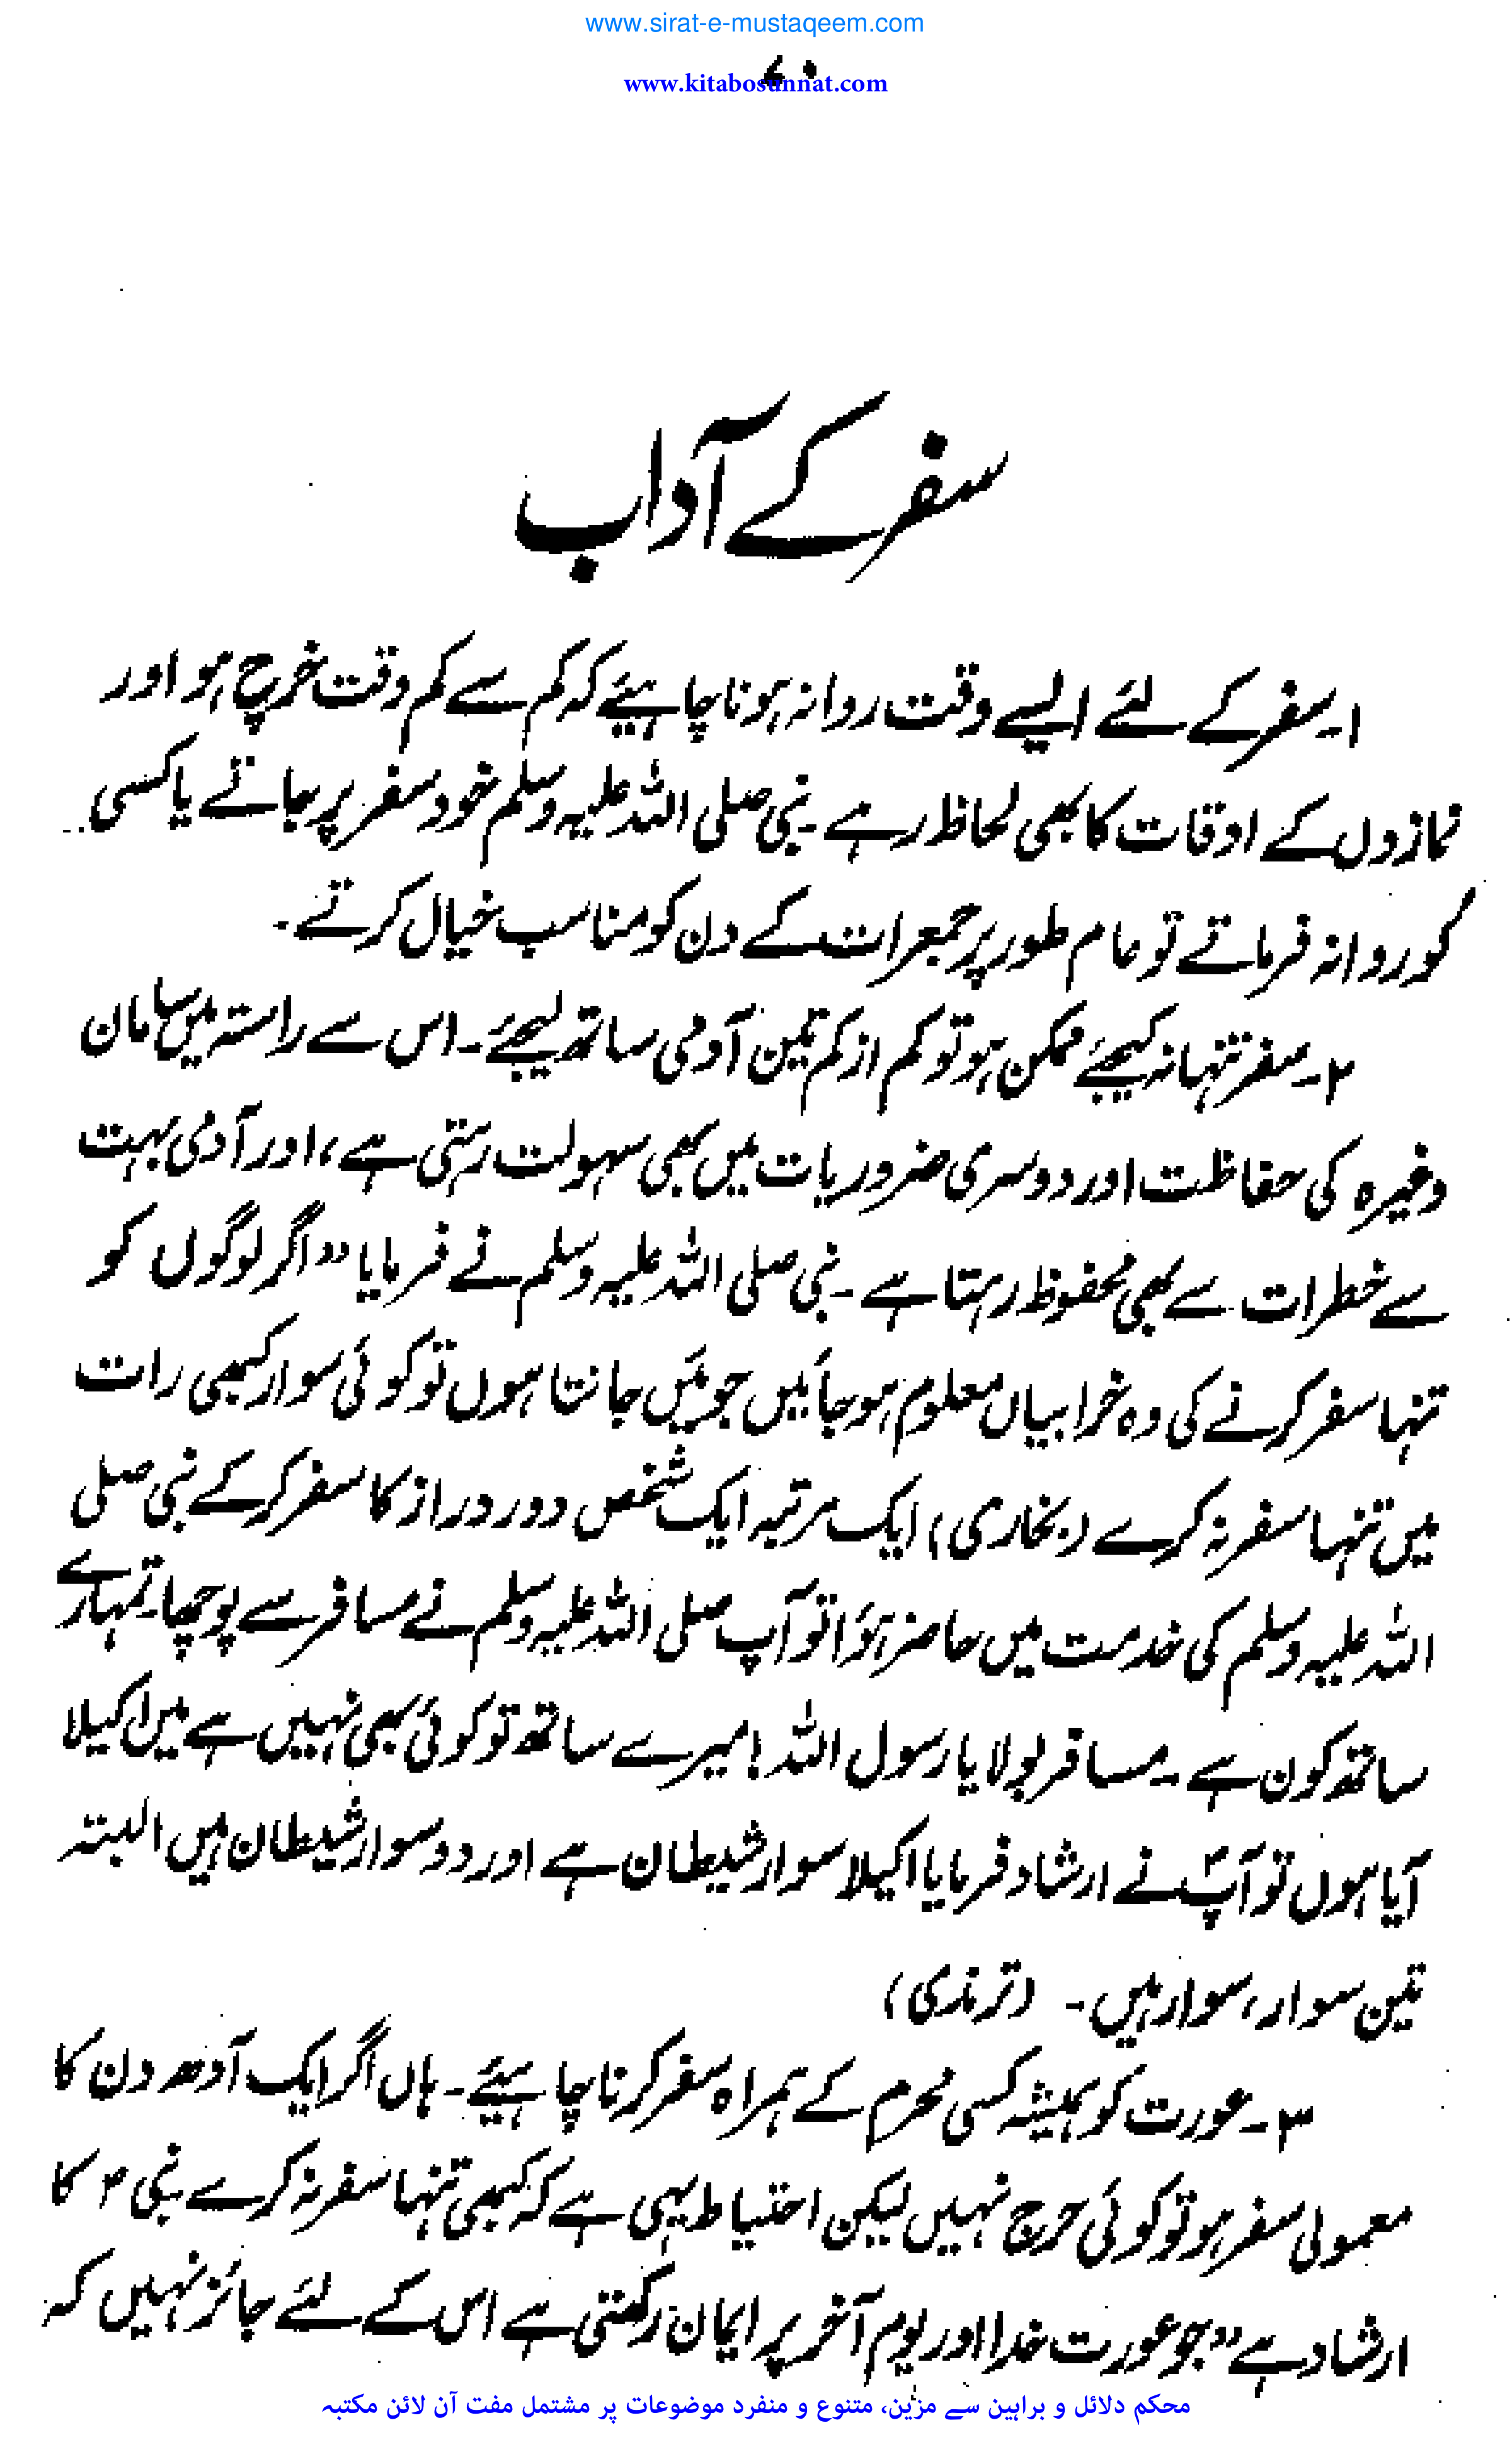 www.sirat-e-mustaqeem.com
۷۰
www.kitabosunnat.com
سفر کے آداب
۱۔ سفر کے لئے ایسے وقت روانہ ہونا چاہیئے کہ کم سے کم وقت خرچ ہو اور
نمازوں کے اوقات کا بھی لحاظ رہے ۔ نبی صلی اللہ علیہ وسلم خود سفر پر جاتے یا کسی
کو روانہ فرماتے تو عام طور پر جمعرات کے دن کو مناسب خیال کرتے ۔
۲۔ سفر تنہا نہ کیجئے ممکن ہو تو کم از کم تین آدمی ساتھ لیجئے ۔ اس سے راستہ میں سامان
وغیرہ کی حفاظت اور دوسری ضروریات میں بھی سہولت رہتی ہے ، اور آدمی بہت
سے خطرات سے بھی محفوظ رہتا ہے ۔ نبی صلی اللہ علیہ وسلم نے فرمایا ”اگر لوگوں کو
تنہا سفر کرنے کی وہ خرابیاں معلوم ہو جائیں جو میں جانتا ہوں تو کوئی سوار کبھی رات
میں تنہا سفر نہ کرے (بخاری) ایک مرتبہ ایک شخص دور دراز کا سفر کر کے نبی صلی
اللہ علیہ وسلم کی خدمت میں حاضر ہؤا تو آپ صلی اللہ علیہ وسلم نے مسافر سے پوچھا۔ تمہارے
ساتھ کون ہے ۔ مسافر بولا یا رسول اللہ ! میرے ساتھ تو کوئی بھی نہیں ہے میں اکیلا
آیا ہوں تو آپؐ نے ارشاد فرمایا اکیلا سوار شیطان ہے اور دو سوار شیطان ہیں البتہ
تین سوار ، سوار ہیں ۔ (ترمذی)
۳۔ عورت کو ہمیشہ کسی محرم کے ہمراہ سفر کرنا چاہیئے ۔ ہاں اگر ایک آدھ دن کا
معمولی سفر ہو تو کوئی حرج نہیں لیکن احتیاط یہی ہے کہ کبھی تنہا سفر نہ کرے نبی ؐ کا
ارشاد ہے ”جو عورت خدا اور یوم آخر پر ایمان رکھتی ہے اس کے لئے جائز نہیں کہ
محکم دلائل و براہین سے مزین، متنوع و منفرد موضوعات پر مشتمل مفت آن لائن مکتبہ